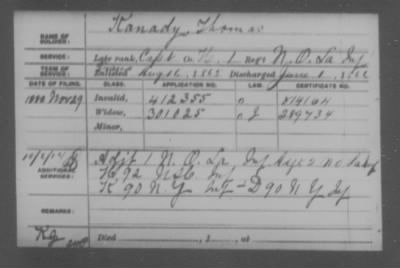 Kanady, Thomas
NAME OF SOLDIER:
SERVICE: Late rank, Capt Co. H, 1 Regt N. O. La Inf
TERM OF SERVICE: Enlisted Aug 16, 1862 Discharged June 1, 1866
DATE OF FILING. CLASS. APPLICATION NO. LAW. CERTIFICATE NO.
1888 Nov 29 Invalid, 412355
Widow, 301825 289734
Minor,
ADDITIONAL SERVICES: Adjt 1 N. O. La Inf
K 90 N Y Inf - D 90 N Y Inf
REMARKS:
Died , 1 , at